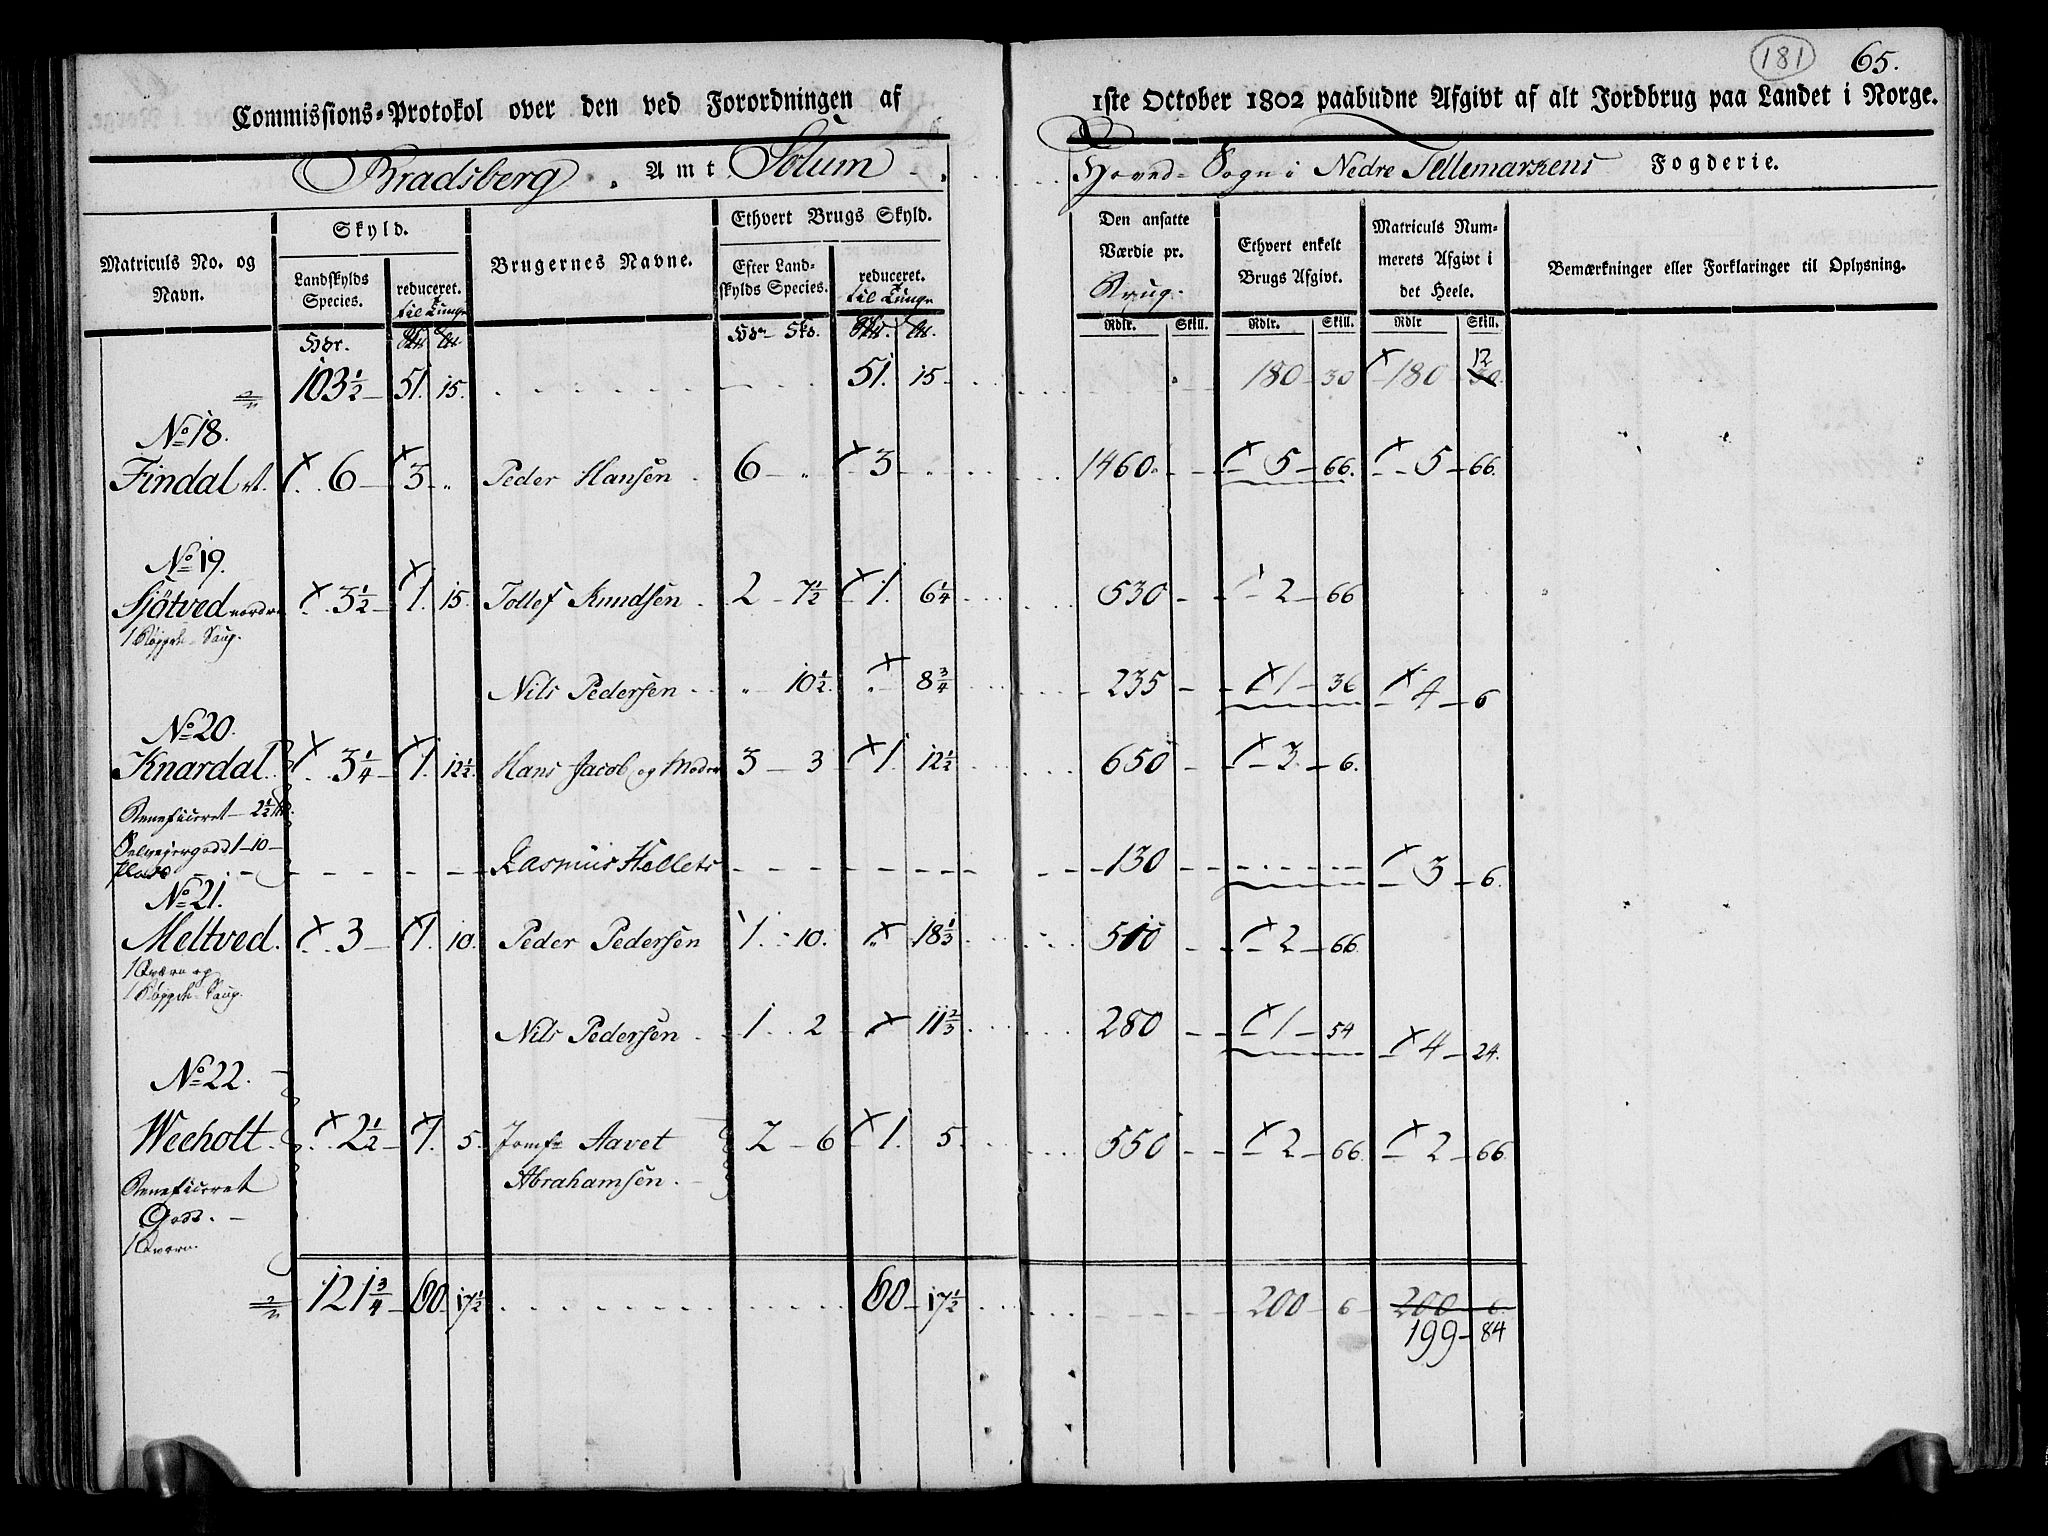 181 65.
Commissions-Protokol over den ved Forordningen af 1ste October 1802 paabudne Afgivt af alt Jordbrug paa Landet i Norge.
Bradsberg Amt Solum Hoved-Sogn i Nedre Tellemarkens Fogderie.
Matriculs No. og Navn.
Skyld.
Landskylds Species.
reduceret. til Tunge
Brugernes Navne.
Ethvert Brugs Skyld.
Efter Landskylds Species.
reduceret. til Tunge
Den ansatte Værdie pr. Brug.
Ethvert enkelt Brugs Afgivt.
Matriculs Nummerets Afgivt i det Heele.
Bemærkninger eller Forklaringer til Oplysning.
Rdlr. Skill. Rdlr. Skill. Rdlr Skill.
103 1/2 51. 15. 51. 15 180 30 180 30 12
No 18.
Findal 6 3 Peder Hansen 6 3 1460 5 66. 5 66.
No 19.
Sjötved nordre 3 1/2 1. 15. Tollef Knudsen 2 7 1/2 1. 6 1/4 530 2 66
1 Saug.
Nils Pedersen 10 1/2 8 3/4 235 1 36 4 6
No 20.
Knardal 3 1/4 1. 12 1/2 Hans Jacob og Moder 3 3 1. 12 1/2 650 3 6.
Beneficeret 2 1/2
Selveiergods 1 10
Plads Rasmus Hellets 130 3 6.
No 21.
Meltved. 3 1. 10. Peder Pedersen 1. 10. 18 1/3 510 2 66.
1 Qværn og
1 Saug.
Nils Pedersen 1 2 11 2/3 280 1 54 4 24.
No 22.
Weeholt. 2 1/2 1. 5. Jomfr Aavet 2 6 1. 5. 550 2 66. 2 66.
Abrahamsen.
Beneficeret
Gods.
1 Qværn.
121 3/4 60 17 1/2 60 17 1/2 200 6 200 6.
199 84